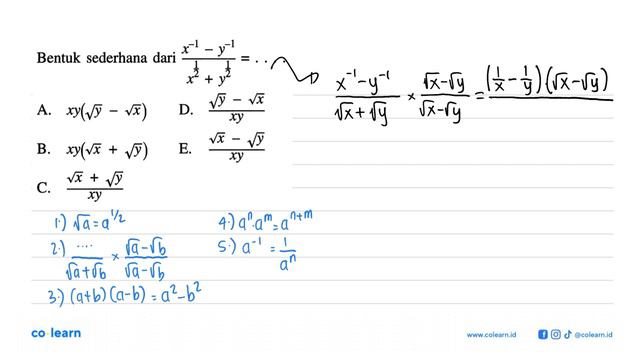 Bentuk sederhana dari (x^-1 - y^-1)/(x^1/2 + y^1/2) = . . .
(x^-1 - y^-1)/(√x + √y) × (√x - √y)/(√x - √y) = (1/x - 1/y)(√x - √y)
A. xy(√y - √x)
B. xy(√x + √y)
C. (√x + √y)/xy
D. (√y - √x)/xy
E. (√x - √y)/xy
1.) √a = a^1/2
2.) ..../(√a + √b) × (√a - √b)/(√a - √b)
3.) (a+b)(a-b) = a^2 - b^2
4.) a^n . a^m = a^n+m
5.) a^-1 = 1/a^n
co learn
www.colearn.id
@colearn.id